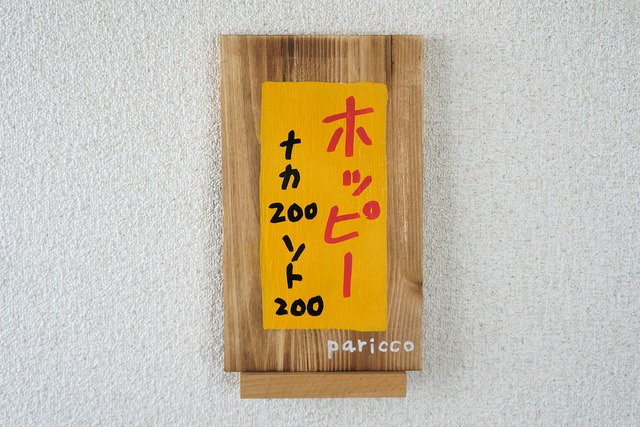 ホッピー
ナカ200
ソト200
paricco